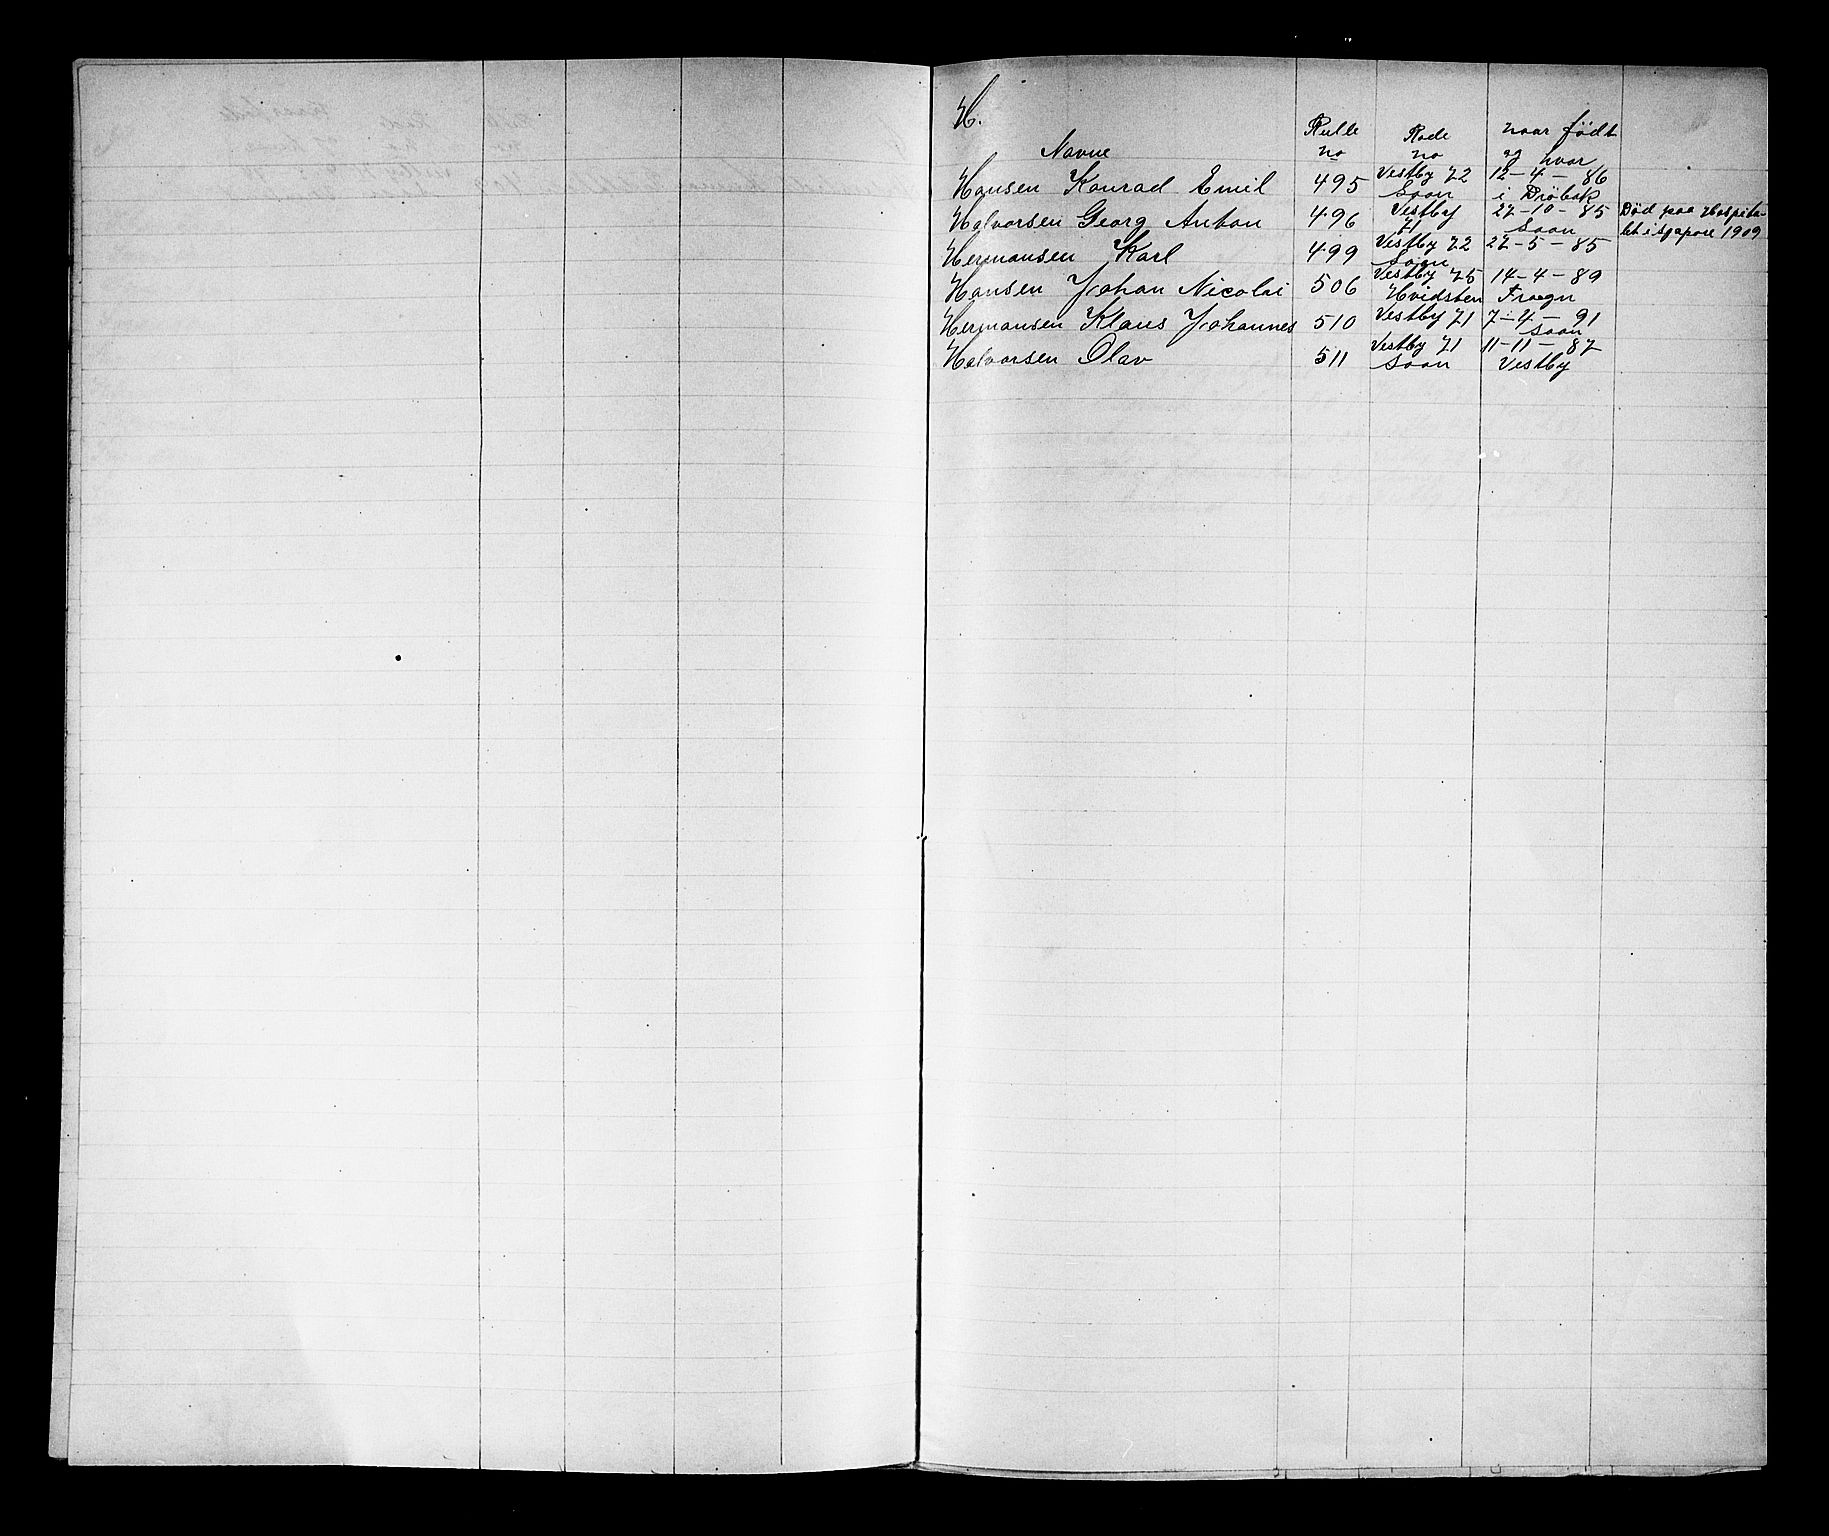 H.
Navne Rulle no Rode no naar født og hvor
Hansen Konrad Emil 495 Vestby 72 Soon 12-4-86 i Drøbak
Halvorsen Georg Anton 496 Vestby 71 27-10-85 Soon Død paa Hospita-
let i 1909
Hermansen Karl 499 Vestby 72 Sogn 27-5-85
Hansen Johan Nicolai 506 Vestby 75 Hvidsten 14-4-89 Fraagn
Hermansen Klaus Johannes 510 Vestby 71 7-4-91 Soon
Halvorsen Olav 511 Vestby 71 Soon 11-11-87 Vestby